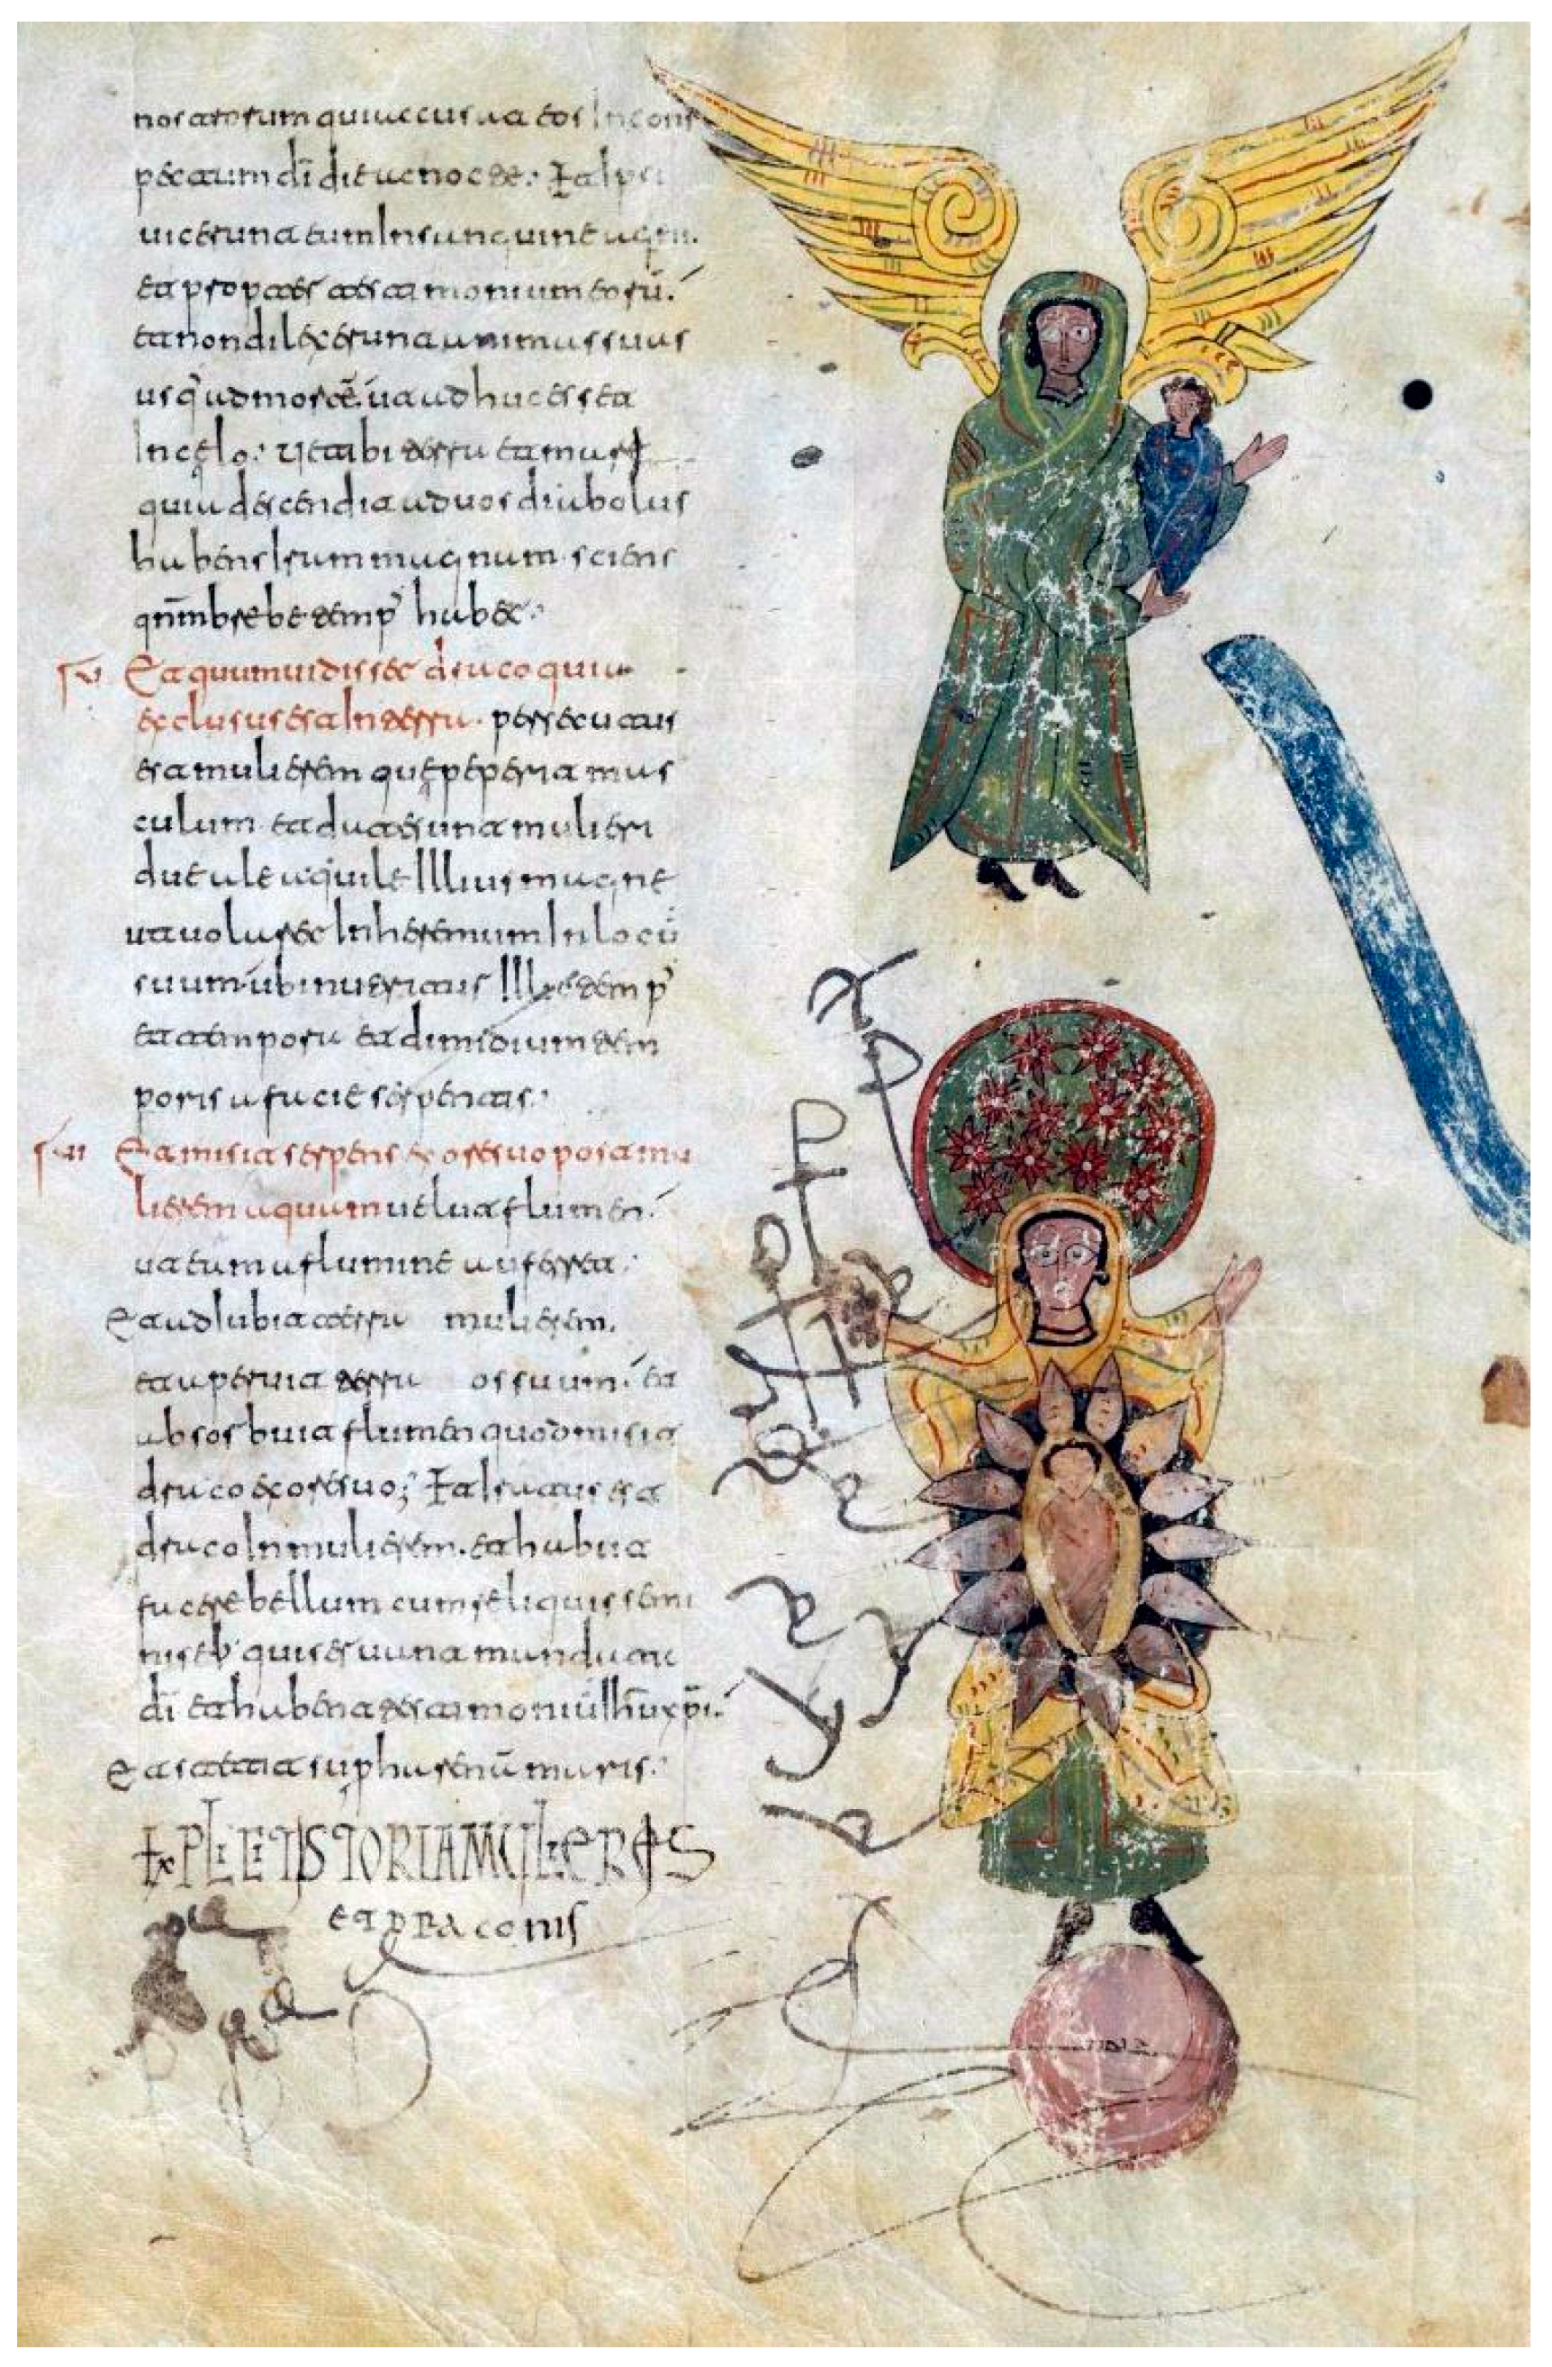 nostrorum qui accusat eos In cons
pectum dī die ac nocte. Et ipsi
uicerunt eum In sanguine agni.
et propter testimonium eorū.
et non dilexerunt animas suas
usq ad mortē. ut adhuc esset
In celo. Ue tibi terra et mare
quia descendit ad uos diabolus
habens Iram magnam. sciens
qnm brebe temp habet.
Et quum uidisset draco quia
exclusus est In terra. persecutus
est mulierem que peperit mas
culum. et date sunt mulieri
due ale aquile Illius magne
ut uolaret In heremum In locū
suum. ubi nutriatur Illic temp
et tempora et dimidium tem
poris a facie serpentis.
Et misit serpens ex ore suo post mu
lierem aquam uelut flumen.
ut eum a flumine auferret.
Et adiubit terra mulierem.
et aperuit terra os suum. et
absorbuit flumen quod misit
draco ex ore suo; Et Iratus est
draco In mulierem. et habiit
facere bellum cum reliquis semi
nis eius qui seruant mandata
dī et habent testimoniū Ihū xpī.
Et stetit sup harenā maris.
EXPLICIT ISTORIA MULIERIS
ET DRACONIS